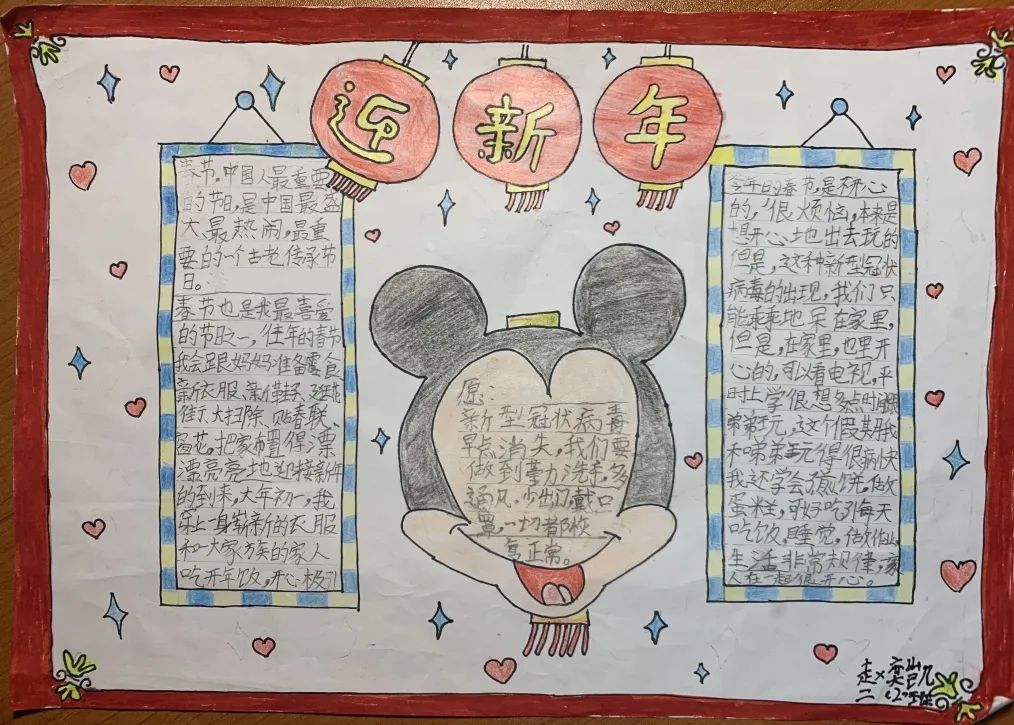 迎新年
春节,中国人最重要
的节日,是中国最盛
大、最热闹,最重
要的一个古老传承节
日。
春节也是我最喜爱
的节日之一,往年的春节
我会跟妈妈准备零食
新衣服、新鞋、逛花
街、大扫除、贴春联、
窗花,把家布置得漂
漂亮亮地迎接新年
的到来,大年初一,我
穿上一身崭新的衣服
和一大家族的家人
吃开年饭,开心极了
愿:
新型冠状病毒
早点消失,我们要
做到勤力洗手,多
通风,少出门,戴口
罩,一切都恢
复正常。
今年的春节,是不开心
的,很烦恼,本来是
想开心地出去玩的
但是,这种新型冠状
病毒的出现,我们只
能乖乖地呆在家里,
但是,在家里,也里开
心的,可以看电视,平
时上学很想多点时间跟
弟弟玩,这个假期我
和弟弟玩得很愉快
我还学会煎饼,做
蛋糕,可好吃了!每天
吃饭,睡觉,做作业,
生活非常规律,家
人在一起很开心。
二(2)班